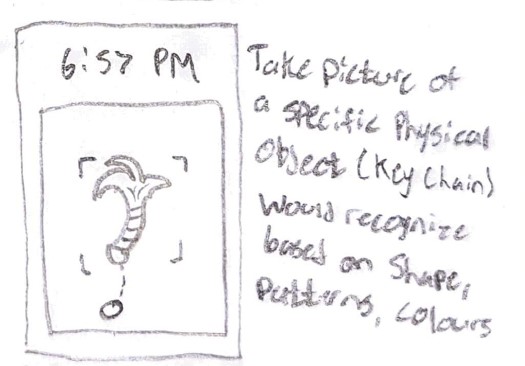 6:57 PM
Take picture of
a specific Physical
Object (Key Chain)
Would recognize
based on Shape,
Patterns, colours